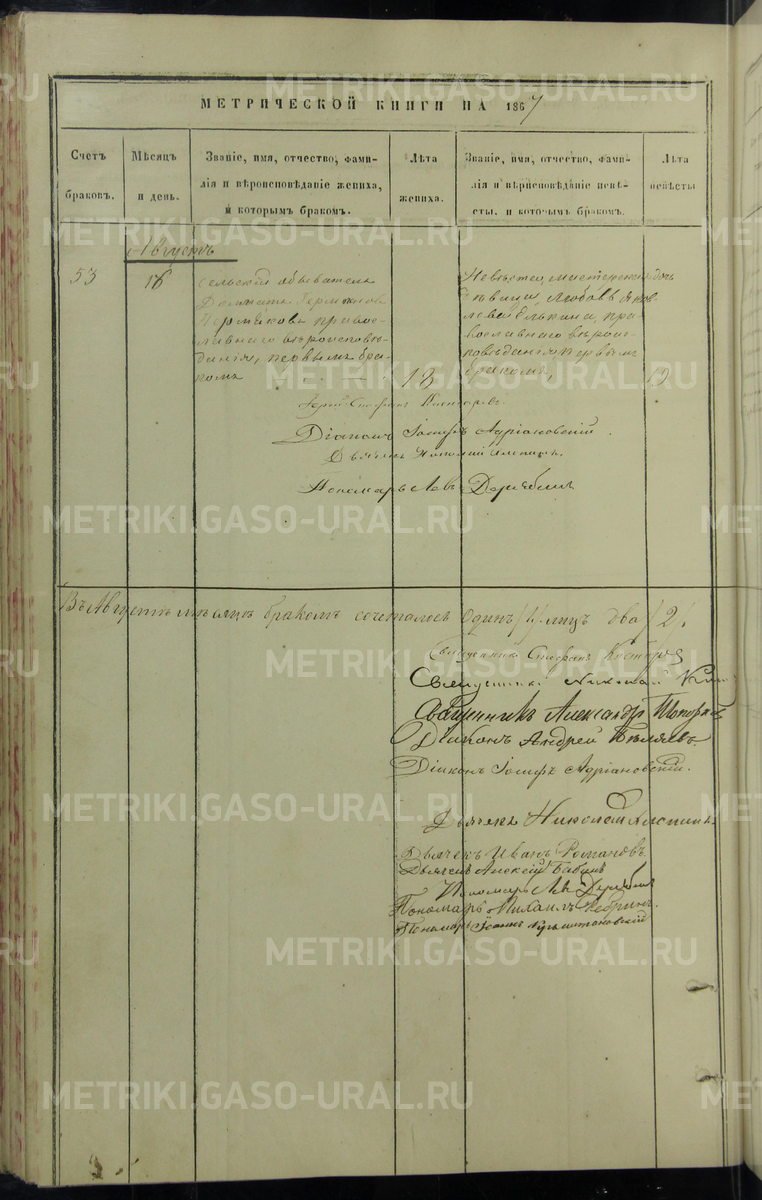 МЕТРИЧЕСКОЙ КНИГИ НА 1867
Счетъ браковъ.
Мѣсяцъ и день.
Званіе, имя, отчество, фами-
лія и вѣроисповѣданіе жениха,
и которымъ бракомъ.
Лѣта жениха.
Званіе, имя, отчество, фами-
лія и вѣроисповѣданіе невѣ-
сты, и которымъ бракомъ.
Лѣта невѣсты
Августъ
53
18
Сельскій обыватель
православ-
наго вѣроисповѣ-
данія, первымъ бра-
комъ
18
Невѣста, мастерская дочь
дѣвица, Любовь Яков-
лева Елькина, пра-
вославнаго вѣроис-
повѣданія первымъ
бракомъ,
19
Діаконъ Іосифъ Адріановскій.
Дьячекъ Николай
Пономарь Левъ Дерябинъ
Въ Августѣ мѣсяцѣ бракомъ сочеталося одинъ /1/ лицъ два /2/.
Священникъ Стефанъ
Священникъ Николай
Священникъ Александръ
Діаконъ Андрей Бѣляевъ.
Діаконъ Іосифъ Адріановскій.
Дьячекъ Николай
Дьячекъ Иванъ Романовъ
Дьячекъ Алексій Бабинъ
Пономарь Левъ Дерябинъ
Пономарь Михаилъ
Пономарь Іоаннъ
METRIKI.GASO-URAL.RU